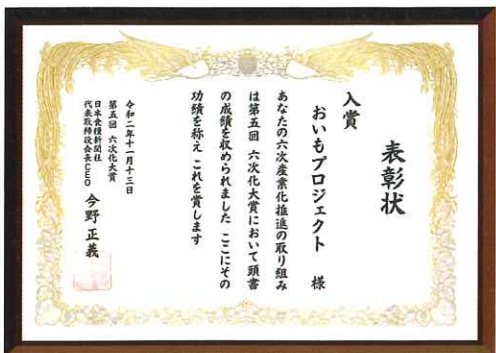 表彰状
入賞
おいもプロジェクト 様
あなたの六次産業化推進の取り組み
は第五回 六次化大賞において頭書
の成績を収められました ここにその
功績を称え これを賞します
令和二年十一月十三日
第五回 六次化大賞
日本食糧新聞社
代表取締役会長CEO 今野正義